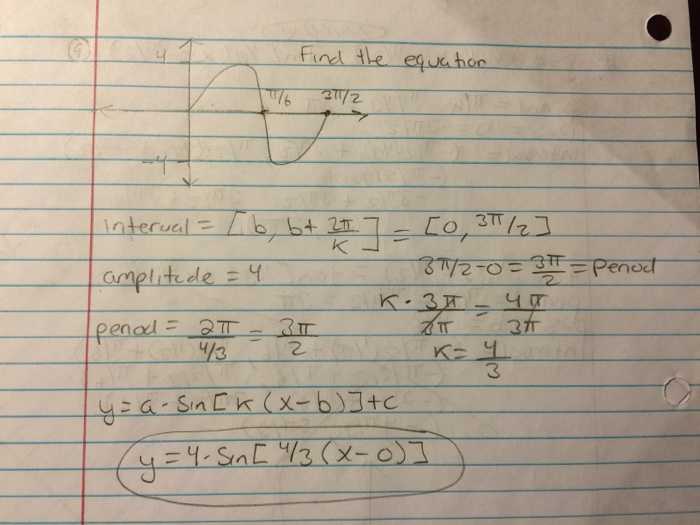 9) 4 Find the equation
π/6 3π/2
-4
interval = [b, b+ 2π/K] = [0, 3π/2]
amplitude = 4 3π/2-0 = 3π/2 = period
K · 3π/3π = 4π/3π
period = 2π/4/3 = 3π/2 K= 4/3
y = a · Sin[K(x-b)]+c
y = 4 · Sin[4/3(x-0)]